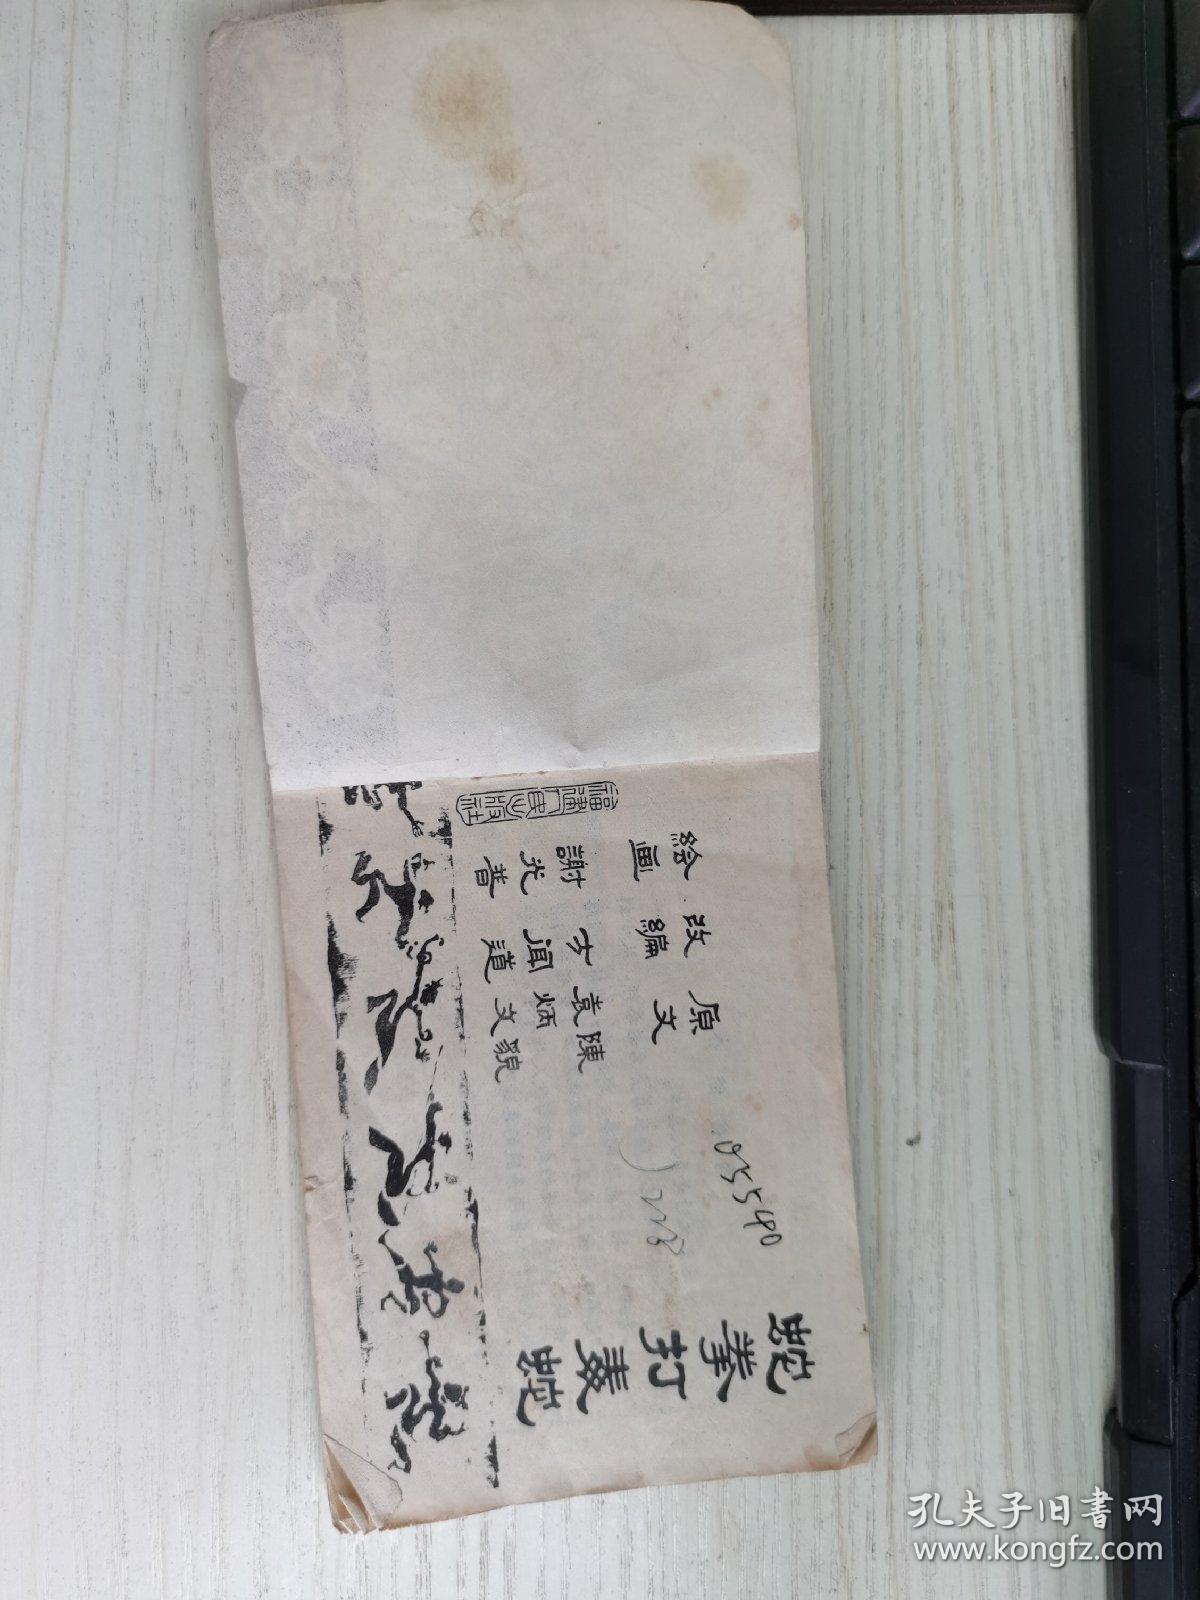 蛇拳打毒蛇
原文 陳貌
袁炳文
改編 方聞道
繪畫 謝光普
福建人民出版社
孔夫子旧書网
www.kongfz.com